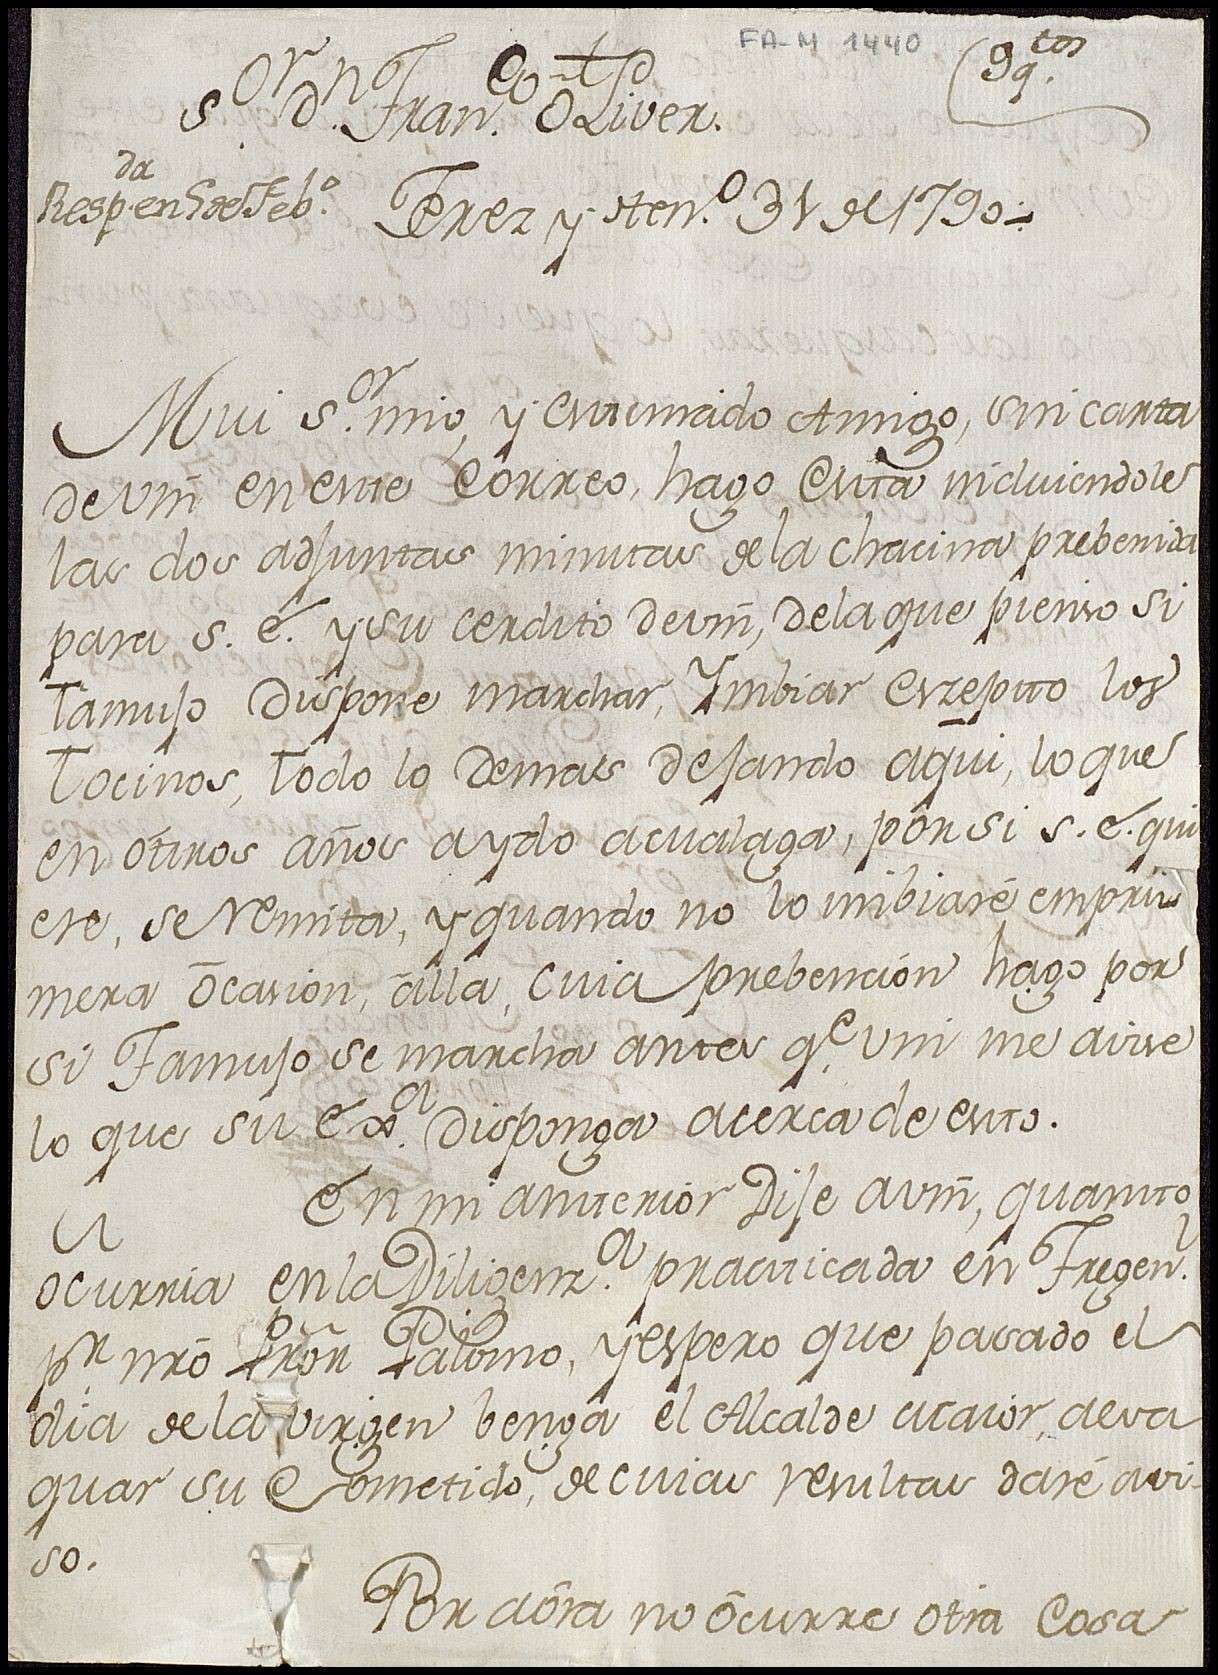 FA-M 1440
9q.tos
Sor. Dn. Franco. Oliver.
Respda. en 5 de Febo.
Xerez y En.o 31 de 1790.
Mui Sor. mio, y estimado Amigo, sin carta
de vm̃ en este Correo, hago esta incluiendole
las dos adjuntas minutas de la chacina prebenida
para S. E. y su cerdito de vm̃, de la que pienso si
Famujo dispone marchar, Ymbiar exzepto los
tocinos, todo lo demas dejando aqui, lo que
en otros años a ydo a cualaga, por si S. E. qui
ere, se remita, y quando no lo imbiaré em pri
mera ocasion, alla, cuia prebencion hago por
si Famujo se marcha antes qe. vm̃ me avise
lo que su Exa. disponga acerca de esto.
En mi anterior Dije a vm̃, quanto
ocurria en la Diligenza. practicada en Fregenl.
pr. nrõ Prõr Palomo, y espero que pasado el
dia de la virgen benga el Alcalde maior, a eva
quar su Cometido, de cuias resultas daré avi-
so.
Por aora no ocurre otra cosa